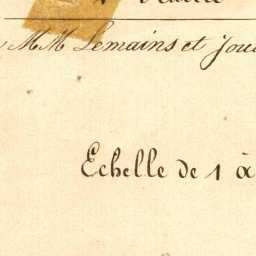 MM Lemains et Jou
Echelle de 1 à